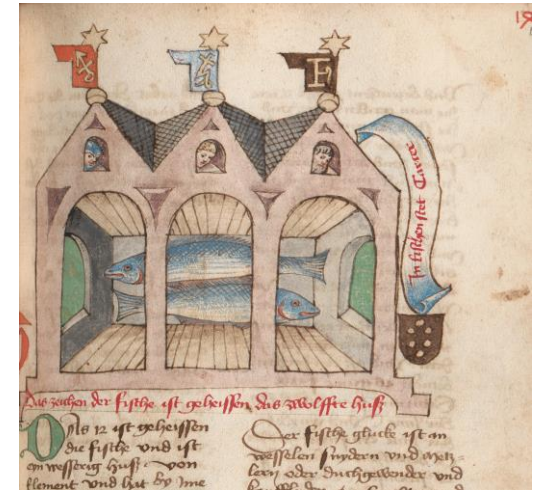 19
F
In fischen stet Cauia
Das zeichen der fische ist geheissen das zwolffte huß
Das 12 ist geheissen
die fische vnd ist
ein wesserig huß von
element vnd hat by jme
Der fische gluck ist an
wesselen snydern vnd metz
lern oder duchgewender vnd